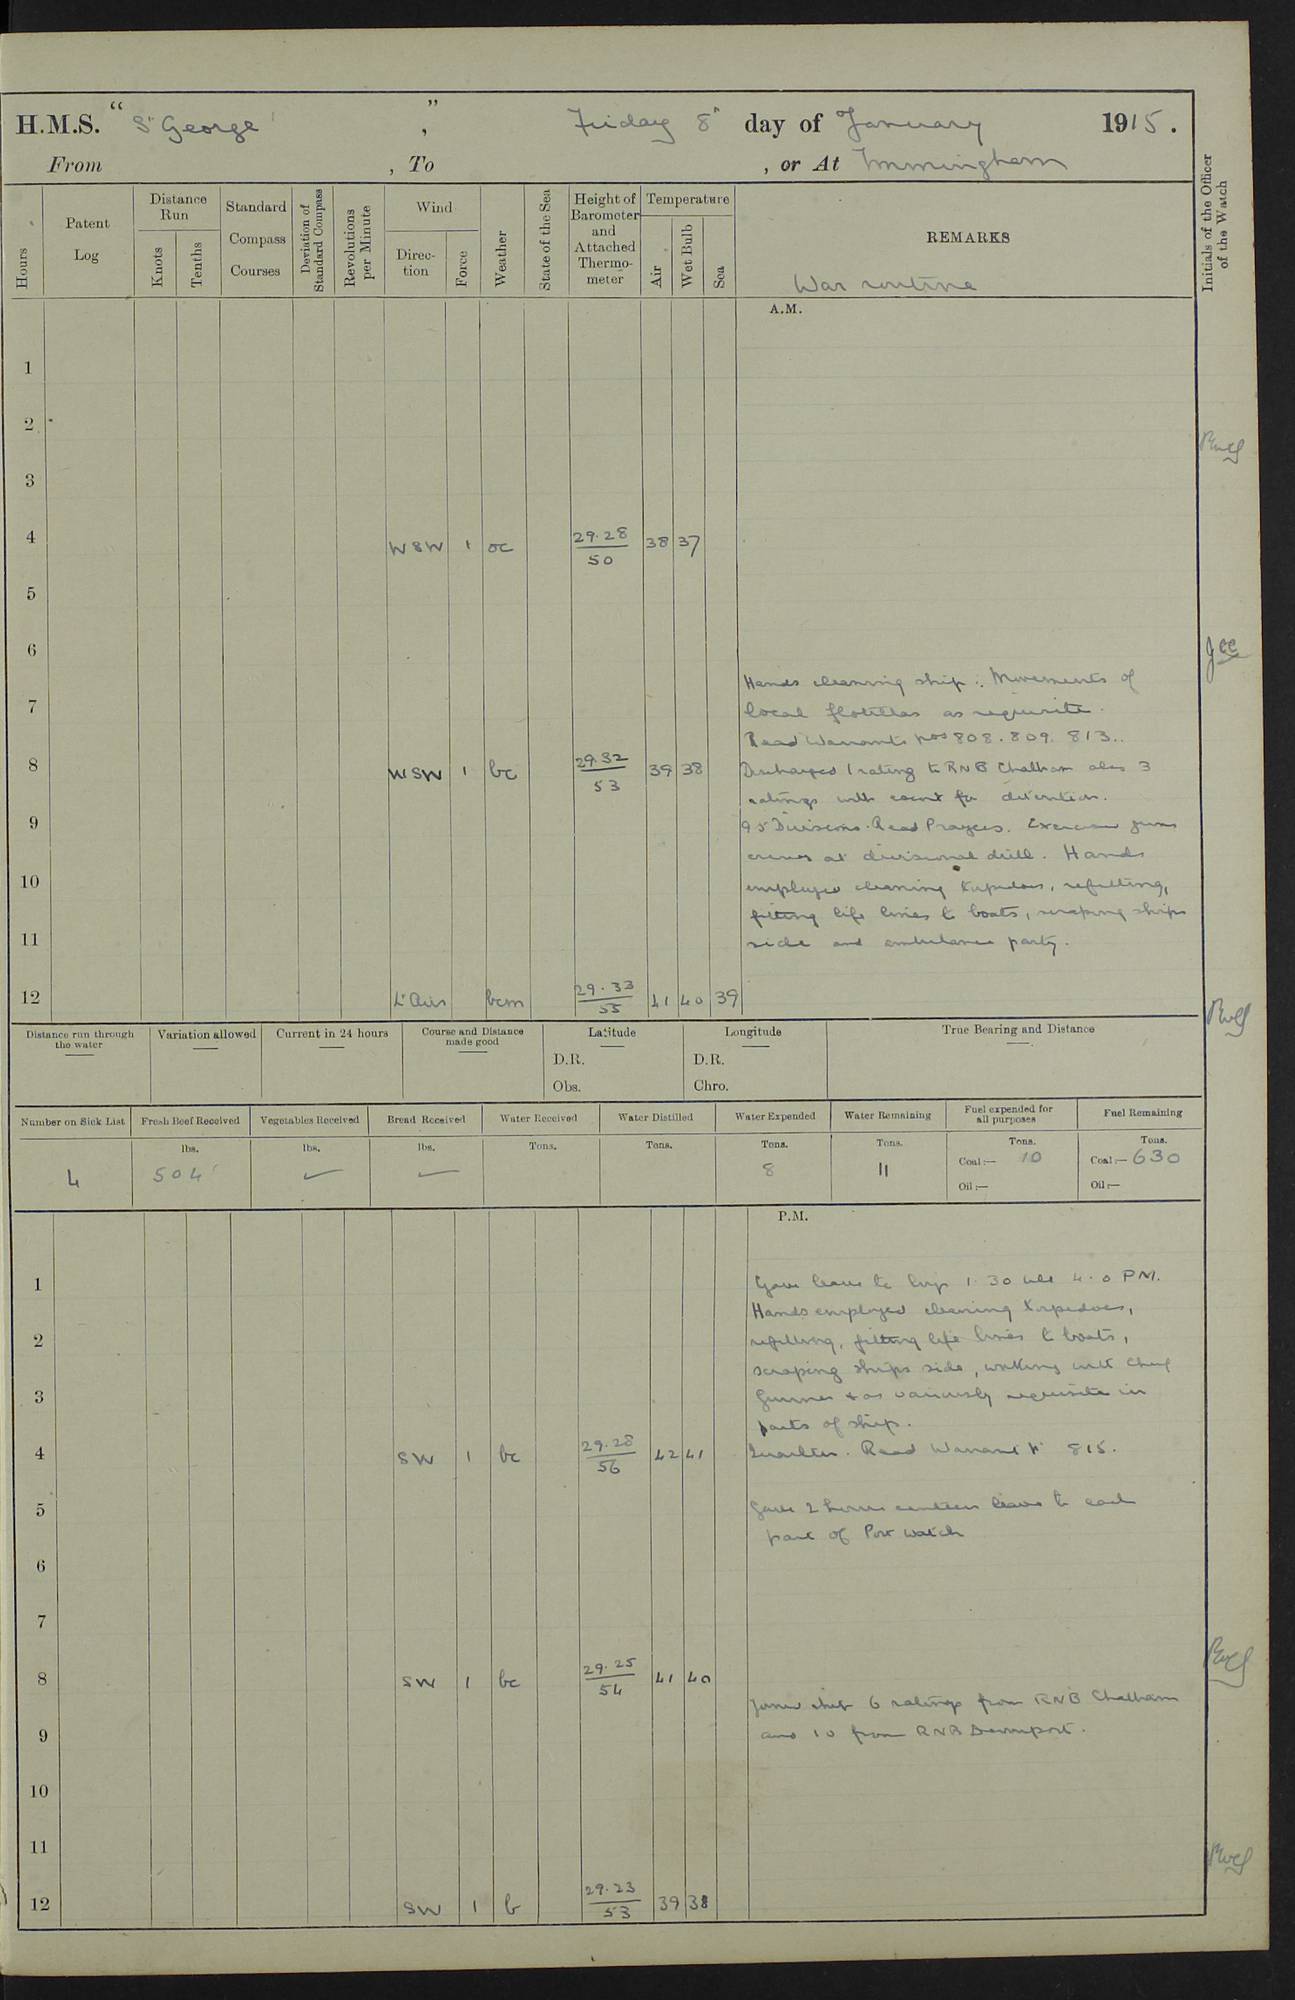 H.M.S. "St George" , Friday 8th day of January 1915.
From , To , or At Immingham
Hours
Patent Log
Distance Run
Knots
Tenths
Standard Compass Courses
Deviation of Standard Compass
Revolutions per Minute
Wind
Direction
Force
Weather
State of the Sea
Height of Barometer and Attached Thermometer
Temperature
Air
Wet Bulb
Sea
REMARKS
War routine
Initials of the Officer of the Watch
A.M.
1
2
3
4 WSW 1 oc 29.28 50 38 37
5
6
Hands cleaning ship. Movements of
7 local flotillas as requisite.
Read Warrants Nos 808. 809. 813.
8 WSW 1 bc 29.32 53 39 38 Discharged 1 rating to RNB Chatham also 3
ratings with escort for detention.
9 9.5 Divisions. Read Prayers. Exercised guns
crews at divisional drill. Hands
10 employed cleaning torpedoes, refitting,
fitting life lines to boats, scraping ships
11 side and ambulance party.
12 Lt Airs bcm 29.33 55 41 40 39
Distance run through the water
Variation allowed
Current in 24 hours
Course and Distance made good
Latitude
D.R.
Obs.
Longitude
D.R.
Chro.
True Bearing and Distance
Number on Sick List
Fresh Beef Received
Vegetables Received
Bread Received
Water Received
Water Distilled
Water Expended
Water Remaining
Fuel expended for all purposes
Fuel Remaining
lbs. lbs. lbs. Tons. Tons. Tons. Tons. Tons. Tons.
4 504 ✓ ✓ 8 11 Coal:— 10 Coal:— 630
Oil:— Oil:—
P.M.
1 Gave leave to boys 1.30 till 4.0 PM.
Hands employed cleaning torpedoes,
2 refitting, fitting life lines to boats,
scraping ships side, working with Chief
3 Gunner & as variously requisite in
parts of ship.
4 SW 1 bc 29.28 56 42 41 Quarters. Read Warrant No 815.
5 Gave 2 hours canteen leave to each
part of Port watch
6
7
8 SW 1 bc 29.25 54 41 40
Joined ship 6 ratings from RNB Chatham
9 and 10 from RNB Devonport.
10
11
12 SW 1 b 29.23 53 39 38